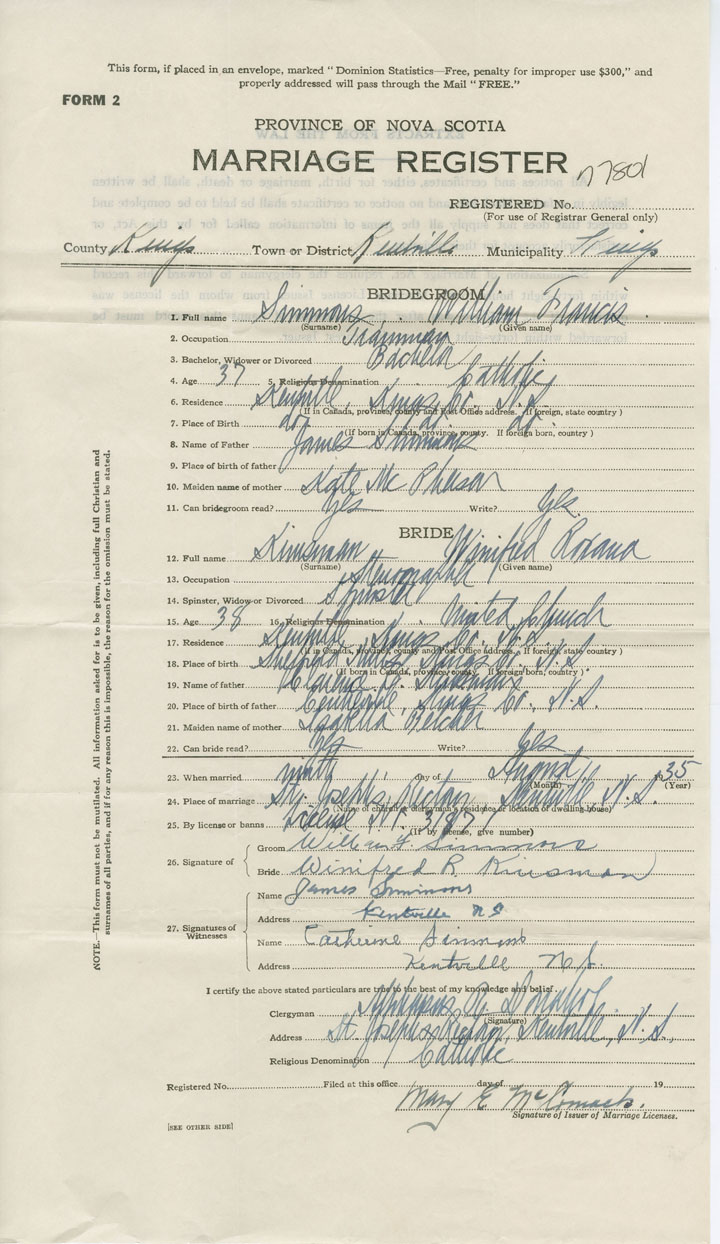 This form, if placed in an envelope, marked " Dominion Statistics—Free, penalty for improper use $300," and
properly addressed will pass through the Mail "FREE."
FORM 2
PROVINCE OF NOVA SCOTIA
MARRIAGE REGISTER
77801
REGISTERED No.
(For use of Registrar General only)
County Kings Town or District Kentville Municipality Kings
BRIDEGROOM
1. Full name Simmons William Francis
(Surname) (Given name)
2. Occupation Trainman
3. Bachelor, Widower or Divorced Bachelor
4. Age 37 5. Religious Denomination Catholic
6. Residence Kentville, Kings Co. N.S.
(If in Canada, province, county and Post Office address. If foreign, state country )
7. Place of Birth do. do. do.
(If born in Canada, province, county. If foreign born, country )
8. Name of Father James Simmons
9. Place of birth of father
10. Maiden name of mother Kate McPherson
11. Can bridegroom read? Yes Write? Yes
BRIDE
12. Full name Kinsman Winifred Roxana
(Surname) (Given name)
13. Occupation Stenographer
14. Spinster, Widow or Divorced Spinster
15. Age 38 16. Religious Denomination United Church
17. Residence Kentville, Kings Co. N.S.
(If in Canada, province, county and Post Office address. If foreign, state country)
18. Place of birth Kings Co. N.S.
(If born in Canada, province, county. If foreign born, country)
19. Name of father Kinsman
20. Place of birth of father Centreville, Kings Co., N.S.
21. Maiden name of mother Isabella Belcher
22. Can bride read? Yes Write? Yes
23. When married ninth day of August 1935
(Month) (Year)
24. Place of marriage St. Joseph's Rectory Kentville, N.S.
(Name of church or clergyman's residence or location of dwelling house)
25. By license or banns License No. 3187
(If by license, give number)
26. Signature of
Groom William F. Simmons
Bride Winifred R. Kinsman
27. Signatures of Witnesses
Name James Simmons
Address Kentville NS
Name Catherine Simmons
Address Kentville N.S.
I certify the above stated particulars are true to the best of my knowledge and belief.
Clergyman R. Donahoe
(Signature)
Address St. Joseph's Rectory, Kentville, N.S.
Religious Denomination Catholic
Registered No. Filed at this office day of 19
Mary E. McCormack.
Signature of Issuer of Marriage Licenses.
[SEE OTHER SIDE]
NOTE.—This form must not be mutilated. All information asked for is to be given, including full Christian and
surnames of all parties, and if for any reason this is impossible, the reason for the omission must be stated.